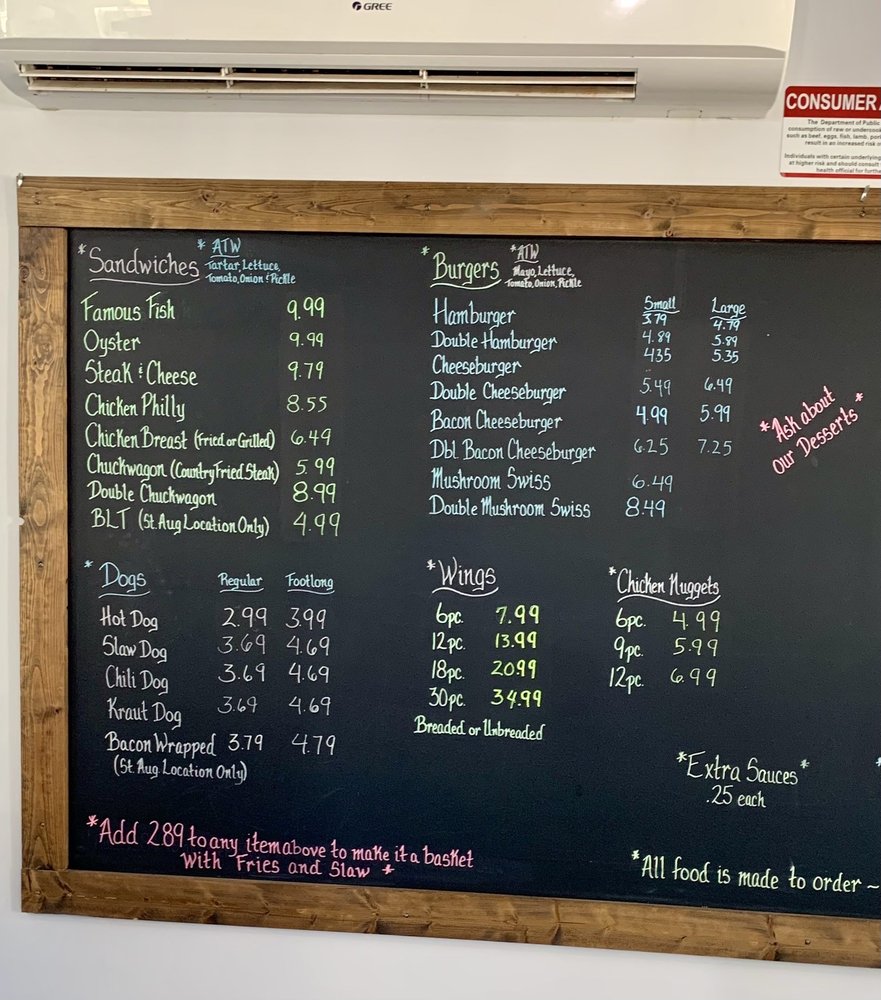 GREE
CONSUMER
The Department of Public
consumption of raw or undercook
such as beef, eggs, fish, lamb, por
result in an increased risk o
Individuals with certain underlying
at higher risk and should consult
health official for furthe
*Sandwiches
* ATW
Tartar, Lettuce,
Tomato, Onion & Pickle
Famous Fish 9.99
Oyster 9.99
Steak & Cheese 9.79
Chicken Philly 8.55
Chicken Breast (Fried or Grilled) 6.49
Chuckwagon (Country Fried Steak) 5.99
Double Chuckwagon 8.99
BLT (St. Aug Location Only) 4.99
*Burgers
*ATW
Mayo, Lettuce,
Tomato, Onion, Pickle
Small Large
Hamburger 3.79 4.79
Double Hamburger 4.89 5.89
Cheeseburger 435 5.35
Double Cheeseburger 5.49 6.49
Bacon Cheeseburger 4.99 5.99
Dbl. Bacon Cheeseburger 6.25 7.25
Mushroom Swiss 6.49
Double Mushroom Swiss 8.49
*Ask about
our Desserts*
*Dogs Regular Footlong
Hot Dog 2.99 3.99
Slaw Dog 3.69 4.69
Chili Dog 3.69 4.69
Kraut Dog 3.69 4.69
Bacon Wrapped 3.79 4.79
(St. Aug. Location Only)
*Wings
6pc. 7.99
12pc. 13.99
18pc. 20.99
30pc. 34.99
Breaded or Unbreaded
*Chicken Nuggets
6pc. 4.99
9pc. 5.99
12pc. 6.99
*Extra Sauces*
.25 each
*Add 2.89 to any item above to make it a basket
With Fries and Slaw *
*All food is made to order ~